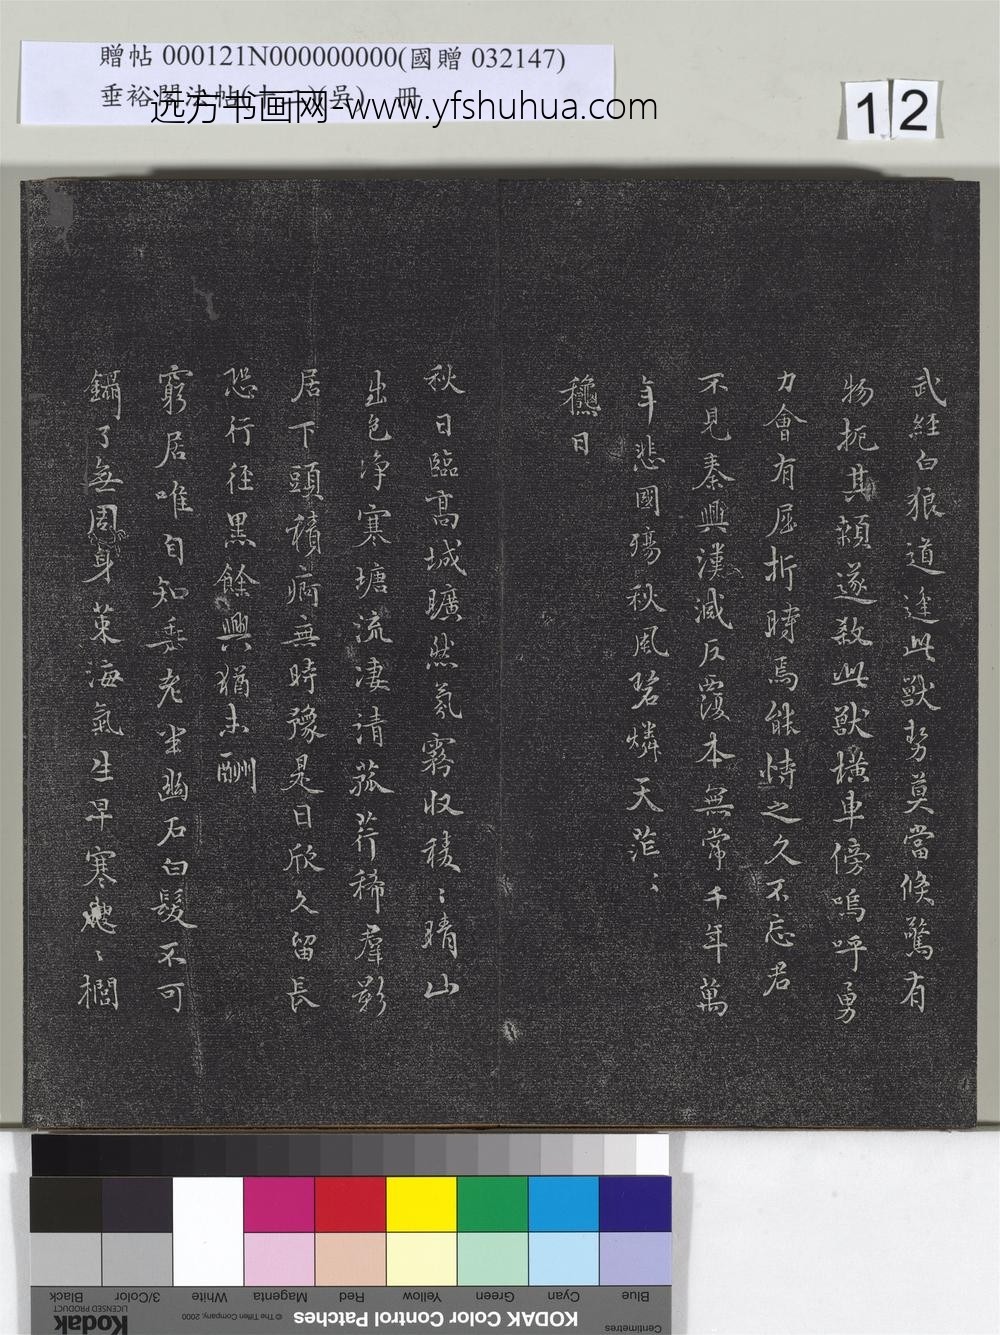 贈帖 000121N000000000(國贈 032147)
垂裕閣法帖
远方书画网-www.yfshuhua.com
12
武經白狼道逢此獸努莫當倏驚有
物扼其頰遂殺此獸橫車傍嗚呼勇
力會有屈折時焉能恃之久不忘君
不見秦興漢滅反覆本無常千年萬
年悲國殤秋風碧燐天茫〻
龝日
秋日臨高城曠然氛霧收稜〻晴山
出色淨寒塘流淒清菰荇稀羣影
居下頭積痾無時豫是日欣久留長
恐行徑黑餘興猶未酬
窮居唯自知垂老坐幽石白髮不可
鑷了無周身策海氣生早寒〻櫚
Black
3/Color
White
Magenta
Red
Yellow
Green
Cyan
Blue
Kodak
LICENSED PRODUCT
© The Tiffen Company, 2000
KODAK Color Control Patches
Centimetres